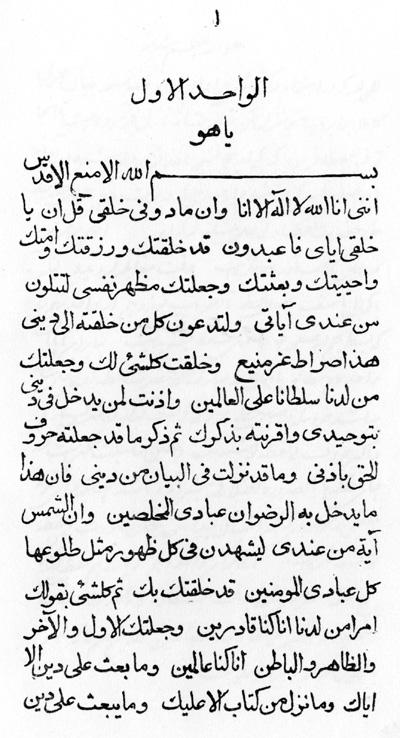 ١
الواحد الاول
یا هو
بســــــم الله الامنع الاقدس
اننی انا الله لا اله الا انا وان ما دونی خلقی قل ان یا
خلقی ایای فاعبدون قد خلقتك ورزقتك وامتك
واحییتك وبعثتك وجعلتك مظهر نفسی لتتلون
من عندی آیاتی ولتدعون کل من خلقته الی دینی
هذا صراط عز منیع وخلقت کلشئ لك وجعلتك
من لدنا سلطانا علی العالمین واذنت لمن یدخل فی دینی
بتوحیدی واقرنته بذکرك ثم ذکر ما قد جعلته حروف
الحی باذنی وما قد نزلت فی البیان من دینی فان هذا
ما یدخل به الرضوان عبادی المخلصین وان الشمس
آیة من عندی لیشهدن فی کل ظهور مثل طلوعها
کل عبادی المومنین قد خلقتك بك ثم کلشئ بقولك
امرا من لدنا انا کنا قادرین وجعلتك الاول والآخر
والظاهر والباطن انا کنا عالمین وما بعث علی دین الا
ایاك وما نزل من کتاب الا علیك وما یبعث علی دین